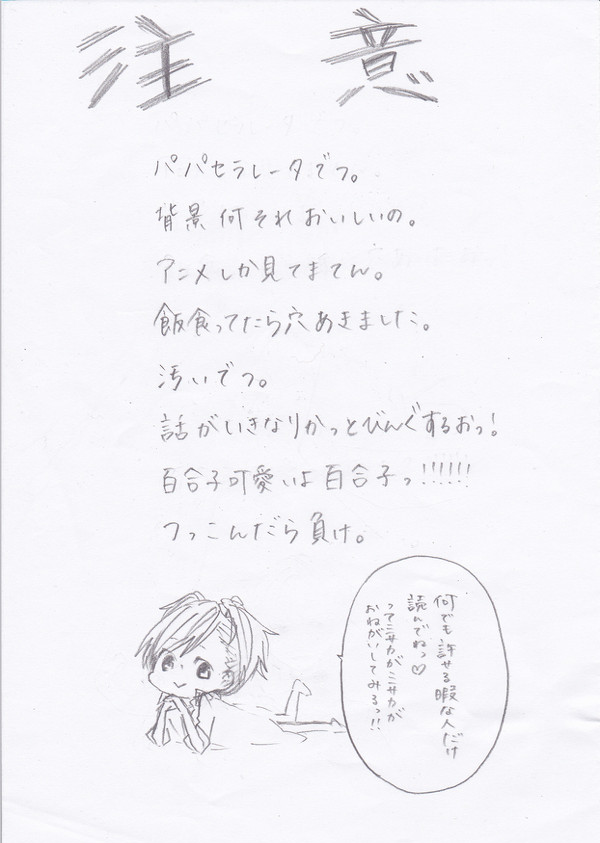 注意
パパセラレータでフ。
背景何それおいしいの。
アニメしか見てまてん。
飯食ってたら穴あきました。
汚いでフ。
話がいきなりかっとびんぐするおっ!
百合子可愛いよ百合子っ!!!!!!
つっこんだら負け。
何でも許せる暇な人だけ
読んでねっ♡
ってミサカがミサカが
おねがいしてみるっ!!